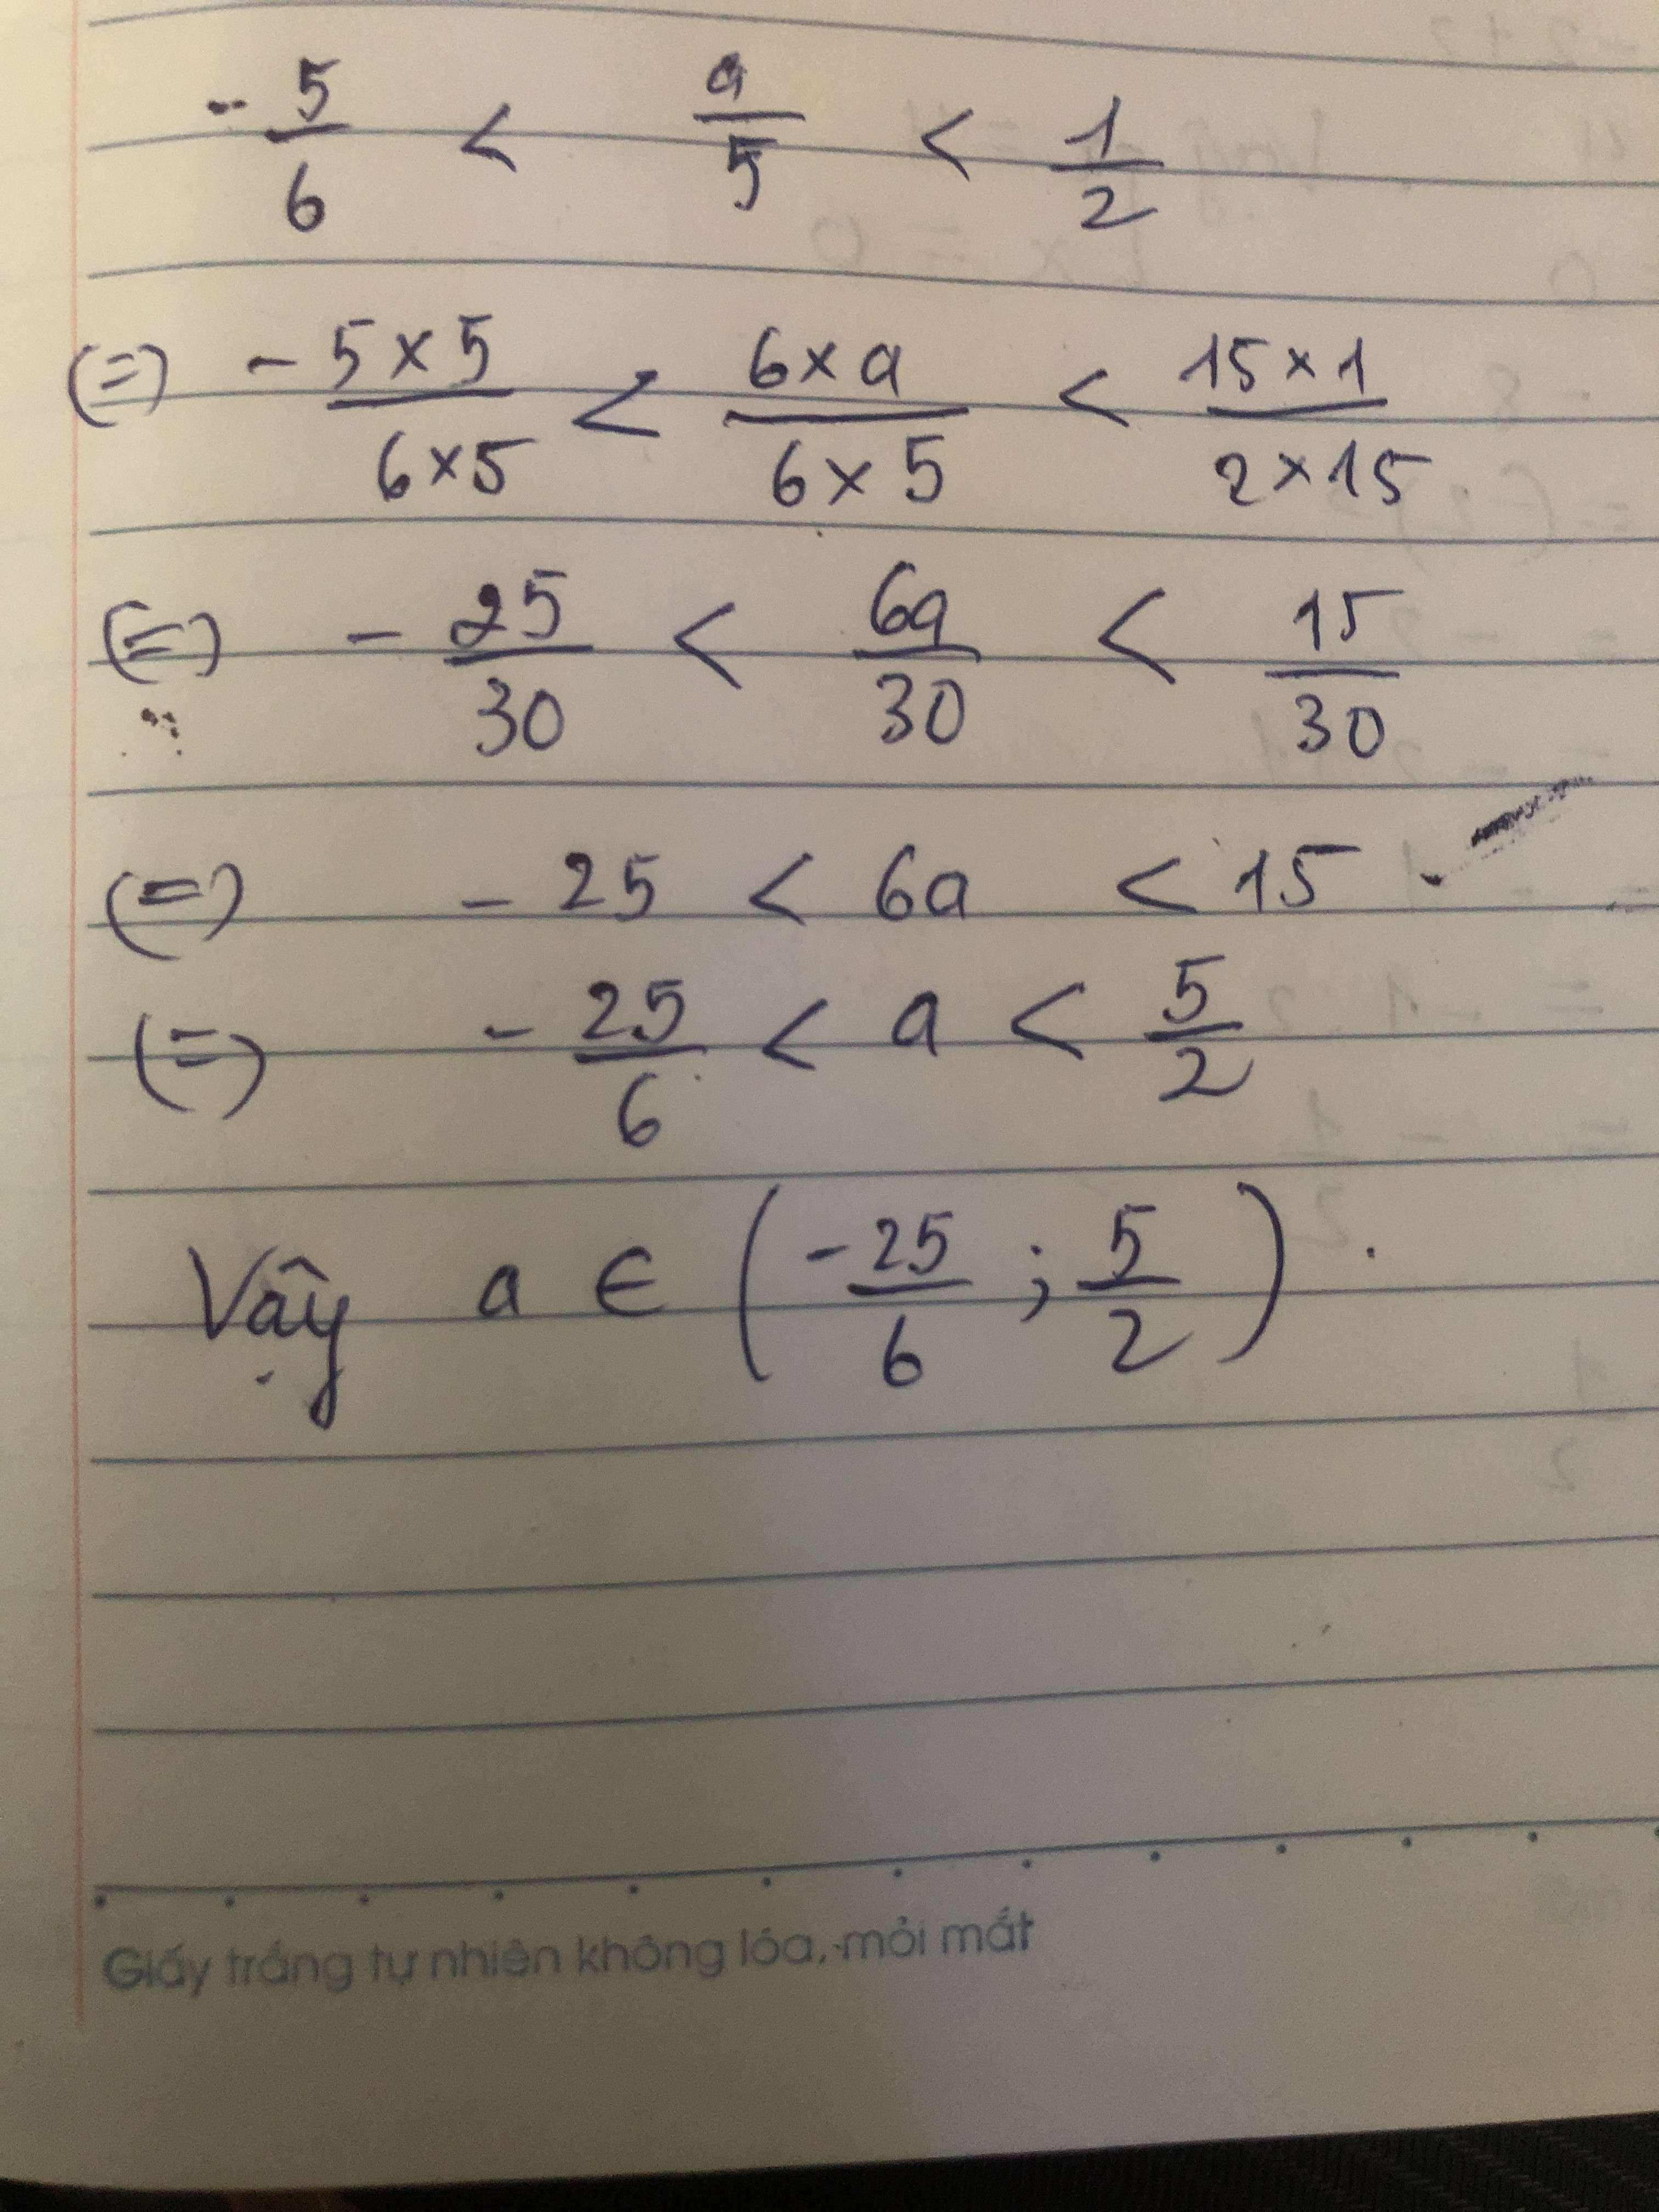 - 5/6 < a/5 < 1/2
(=) - 5×5/6×5 < 6×a/6×5 < 15×1/2×15
(=) - 25/30 < 6a/30 < 15/30
(=) - 25 < 6a < 15
(=) - 25/6 < a < 5/2
Vậy a ∈ (-25/6 ; 5/2).
Giấy trắng tự nhiên không lóa, mỏi mắt